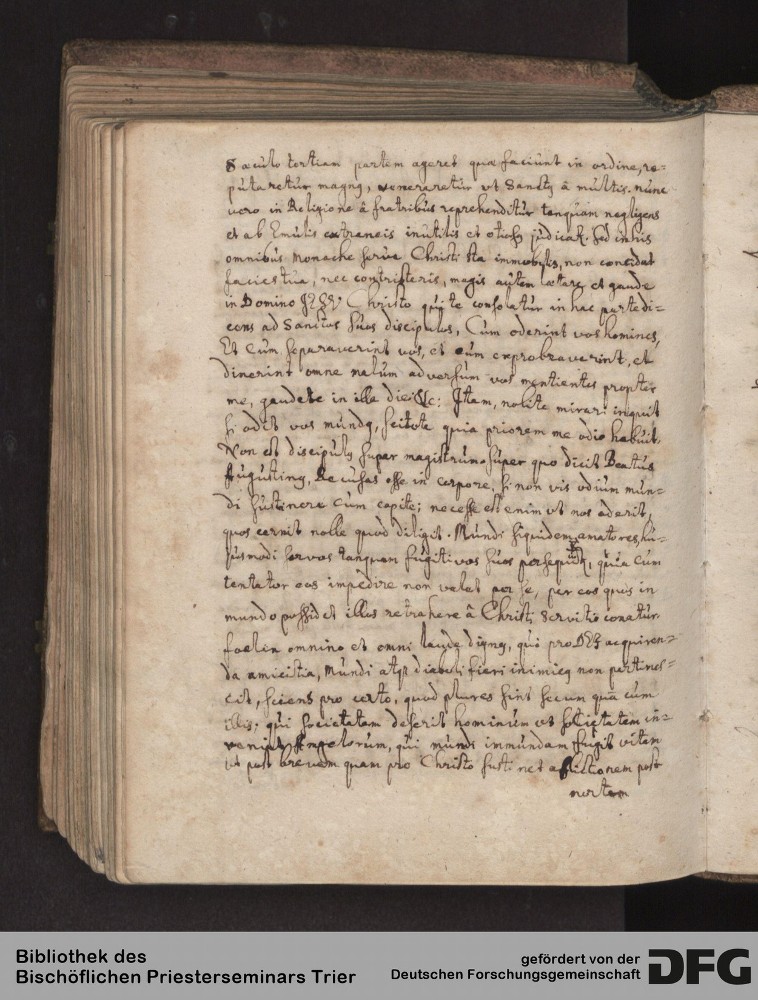 Sæculo tertiam partem ageret quæ faciunt in ordine, re=
putaretur magnꝰ, veneraretur ut Sanctꝰ â multis. nunc
vero in Religione â fratribus reprehenditur tanquam negligens
et ab Emulis extraneis inutilis et otiosꝰ judicat.̃ Sed in his
omnibus monache serve Christi sta immobilis, non concidat
facies tua, nec contristeris, magis autem lætare et gaude
in Domino Christo qui te consolatur in hac parte di=
cens ad Sanctos suos discipulos, Cum oderint vos homines,
Et Cum separaverint vos, et cum exprobraverint, et
dixerint omne malum adversum vos mentientes propter
me, gaudete in illa die &c: Item, nolite mirari inquit
si odit vos mundꝰ, scitote quia priorem me odio habuit.
Non est discipulꝰ super magistrum. super quo dicit Beatus
Augustinꝰ, Recusas esse in corpore, si non vis odium mun=
di sustinere cum capite; necesse est enim ut nos oderit,
quos cernit nolle quod diligit. Mundi siquidem amatores hu=
jusmodi servos tanquam fugitivos suos persequūtr, quia cum
tentator eos impedire non valet per se, per eos quis in
mundo possidet illos retrahere â Christi Servitio conatur.
foelix omnino et omni laude dignꝰ, qui pro acquiren=
da amicitia, mundi atqꝫ diaboli fieri inimicꝰ non pertimes=
cit, sciens pro certo, quod plures sint secum quã cum
illis; qui societatem deserit hominum ut societatem in=
veniat Angelorum, qui mundi immundam fugit vitam
ut post brevem quam pro Christo sustinet afflictionem post
mortem
Bibliothek des
Bischöflichen Priesterseminars Trier
gefördert von der
Deutschen Forschungsgemeinschaft
DFG